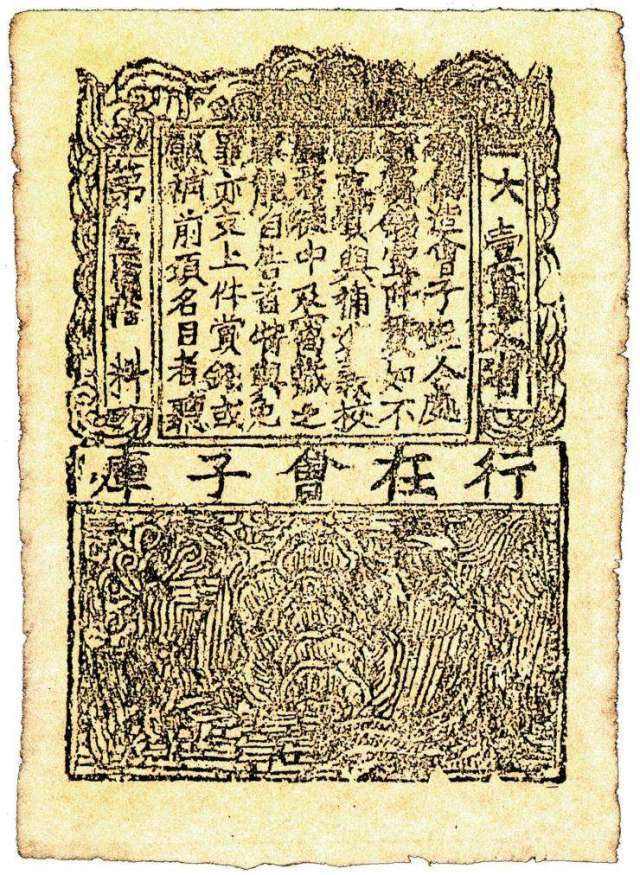 大壹貫文省
偽造會子犯人處
賞錢壹阡貫如不
支賞與補進義校
若徒中及窩藏之
家能自告首特與免
罪亦支上件賞錢或
願補前項名目者聽
第壹百拾料
行在會子庫